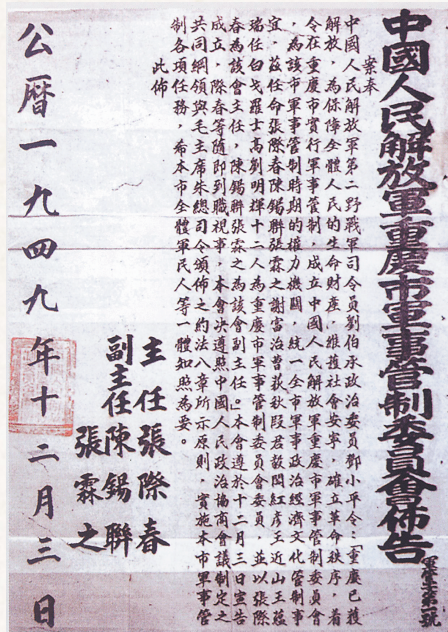 中國人民解放軍重慶市軍事管制委員會佈告
案奉
中國人民解放軍第二野戰軍司令員劉伯承政治委員鄧小平令：「重慶已獲
解放，為保障全體人民的生命財產，維護社會安寧，確立革命秩序，着
令在重慶市實行軍事管制，成立中國人民解放軍重慶市軍事管制委員會
，為該市軍事管制時期的權力機關，統一全市軍事政治經濟文化管制事
宜，茲任命張際春陳錫聯張霖之謝富治曹荻秋段君毅閻紅彥王近山王蘊
瑞任白戈羅士高劉明輝十二人為重慶市軍事管制委員會委員，並以張際
春為該會主任，陳錫聯張霖之為該會副主任。」本會遵於十二月三日宣告
成立，際春等隨即到職視事，本會決遵照中國人民政治協商會議制定之
共同綱領與毛主席朱總司令頒佈之約法八章所示原則，實施本市軍事管
制各項任務，希本市全體軍民人等一體知照為要。
此佈
主任張際春
副主任陳錫聯
張霖之
公曆一九四九年十二月三日